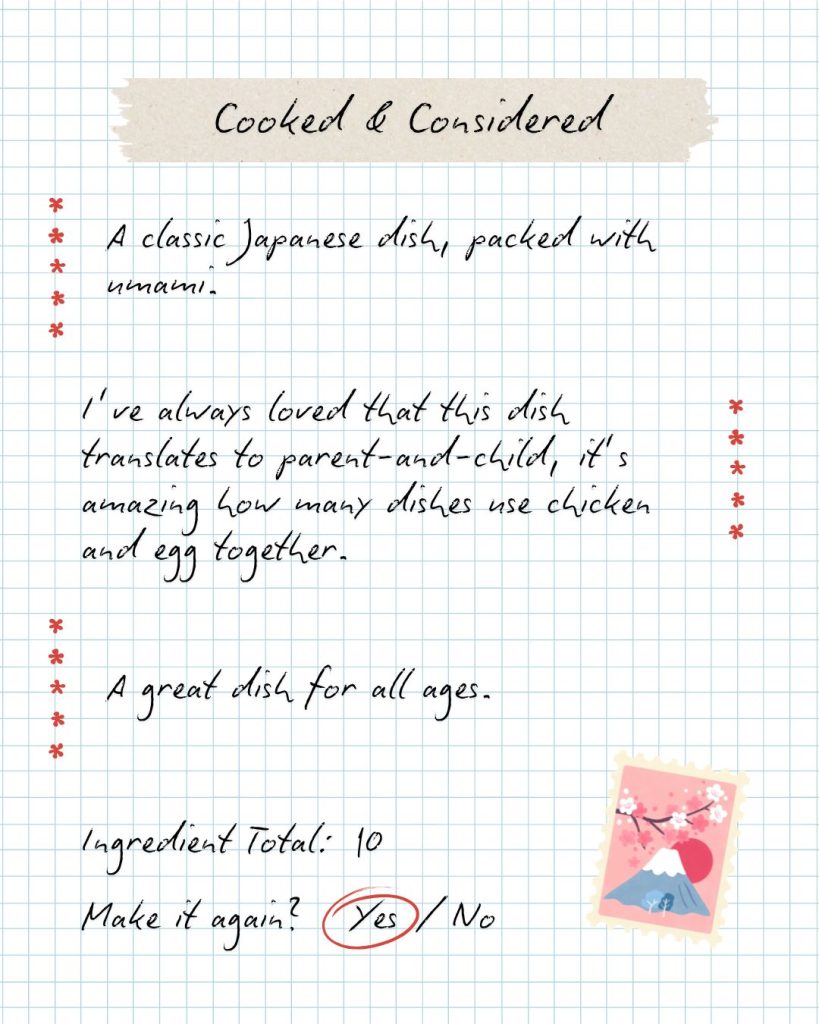 Cooked & Considered
A classic Japanese dish, packed with
umami.
I've always loved that this dish
translates to parent-and-child, it's
amazing how many dishes use chicken
and egg together.
A great dish for all ages.
Ingredient Total: 10
Make it again? Yes / No